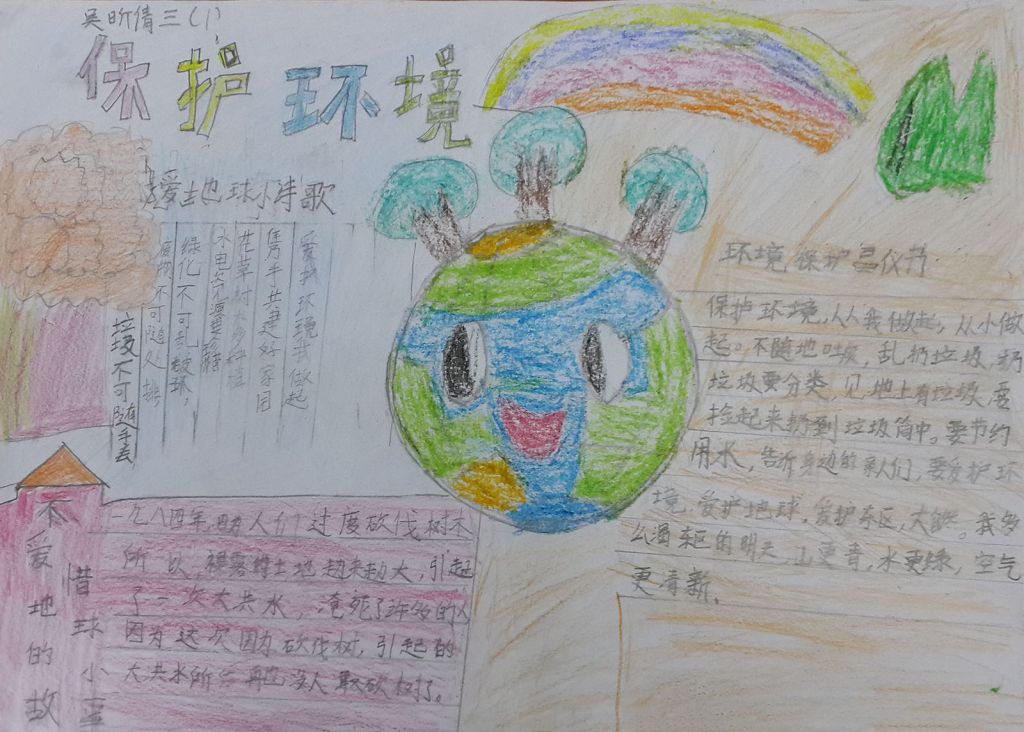 吴昕倩三(1)
保护环境
爱地球小诗歌
爱我环境我做起
携手共建好家园
花草树木多种植
水电资源要
绿化不可乱破坏,
废物不可随处排
垃圾不可随手丢
环境保护 仪节
保护环境,人人我做起,从小做
起。不随地吐痰,乱扔垃圾,扔
垃圾要分类,见地上有垃圾,要
捡起来扔到垃圾筒中。要节约
用水,告诉身边的亲人们,要爱护环
境,爱护地球,爱护东区,大鹏。我多
么渴 的明天,山更青,水更绿,空气
更清新。
不爱惜地球的小故
一九八四年,因为人们过度砍伐树木
所以,裸露的土地越来越大,引起
了一次大洪水,淹死了许多的人
因为这次因为砍伐树,引起的
大洪水所 再也没人敢砍树了。